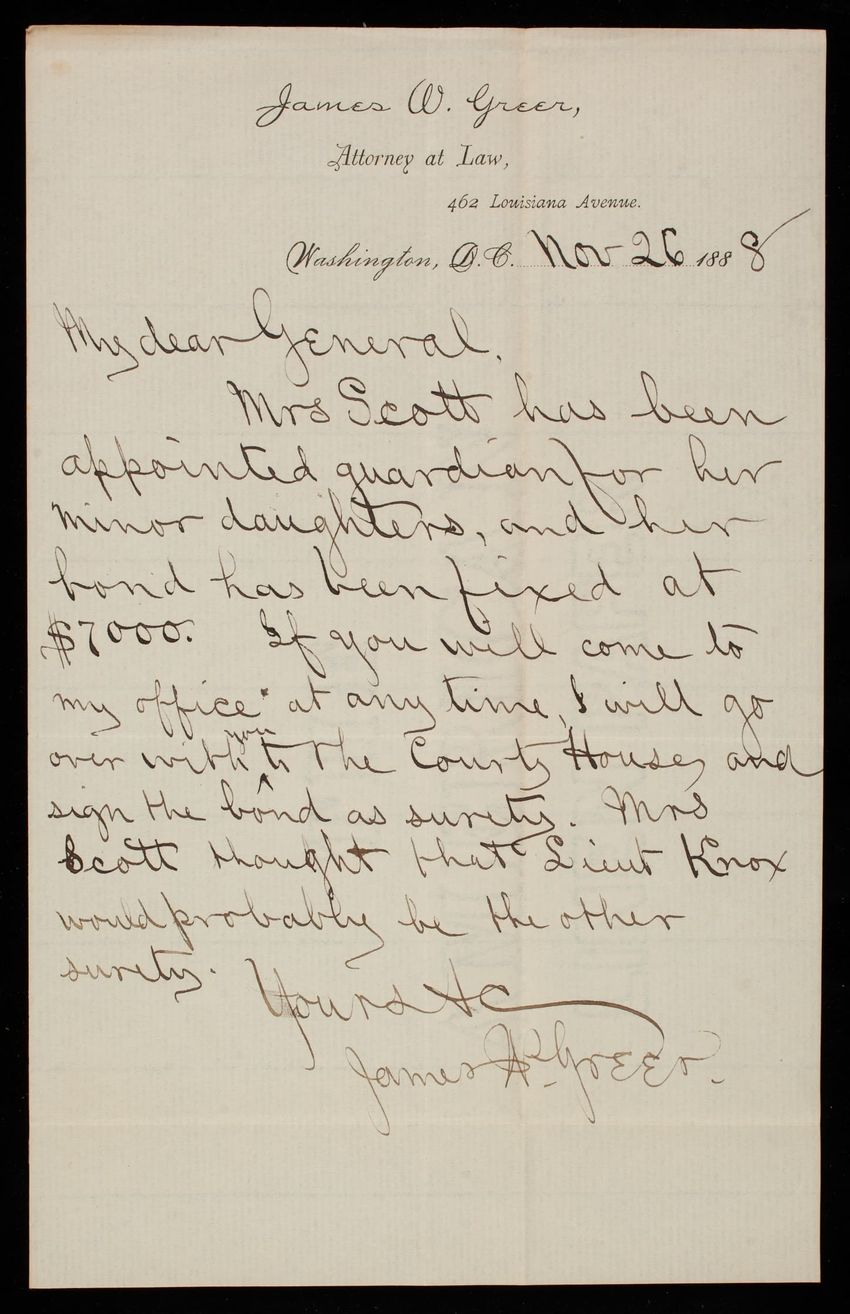 James W. Greer,
Attorney at Law,
462 Louisiana Avenue.
Washington, D.C. Nov 26 1888
My dear General.
Mrs Scott has been
appointed guardian for her
minor daughters, and her
bond has been fixed at
$7000. If you will come to
my office at any time, I will go
over with you to the Court House, and
sign the bond as surety. Mrs
Scott thought that Lieut Knox
would probably be the other
surety.
Yours &c
James W. Greer.